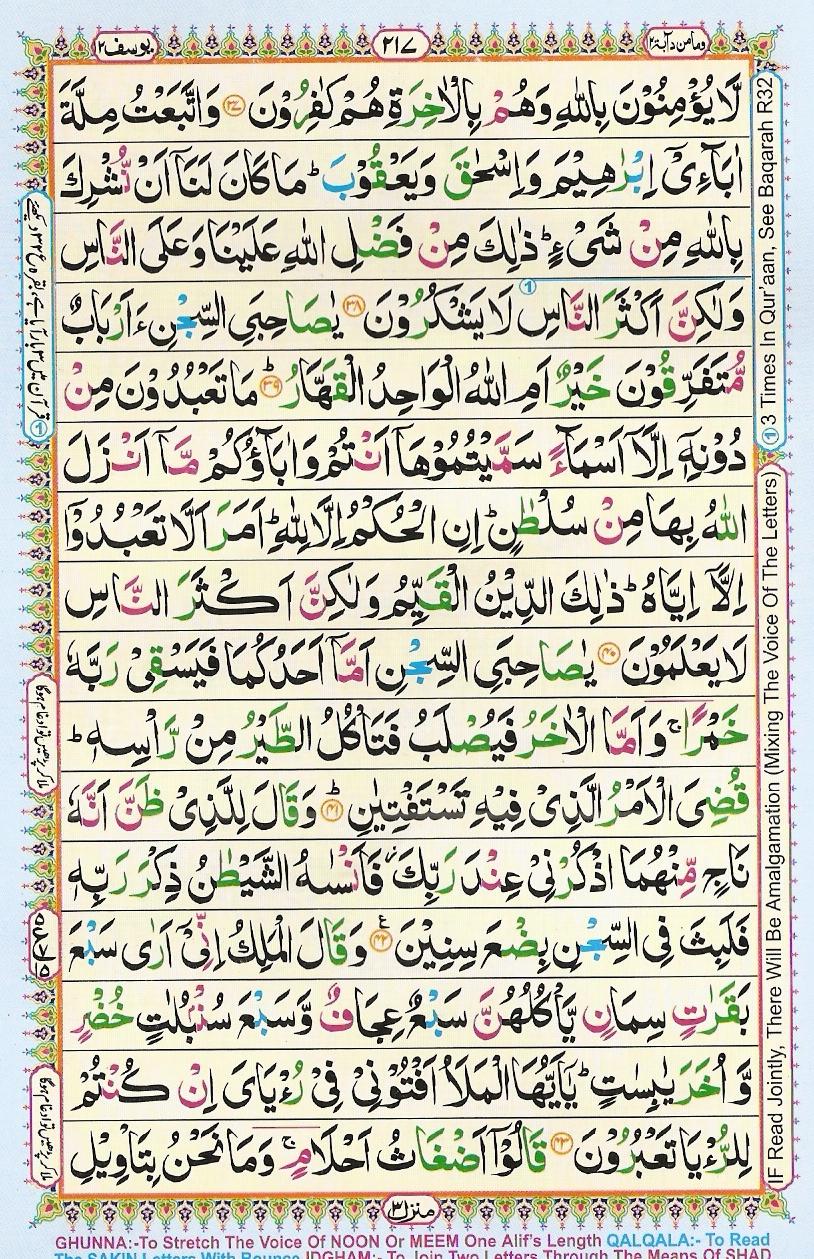 ومامن دآبۃ ۱۲ ۲۱۷ یوسف ۱۲
لَّا يُؤْمِنُوْنَ بِاللّٰهِ وَهُمْ بِالْاٰخِرَةِ هُمْ كٰفِرُوْنَ ۳۷ وَاتَّبَعْتُ مِلَّةَ
اٰبَآءِيْٓ اِبْرٰهِيْمَ وَاِسْحٰقَ وَيَعْقُوْبَ ؕ مَا كَانَ لَنَآ اَنْ نُّشْرِكَ
بِاللّٰهِ مِنْ شَيْءٍ ؕ ذٰلِكَ مِنْ فَضْلِ اللّٰهِ عَلَيْنَا وَعَلَى النَّاسِ
وَلٰكِنَّ اَكْثَرَ النَّاسِ لَا يَشْكُرُوْنَ ۳۸ يٰصَاحِبَيِ السِّجْنِ ءَاَرْبَابٌ
مُّتَفَرِّقُوْنَ خَيْرٌ اَمِ اللّٰهُ الْوَاحِدُ الْقَهَّارُ ؕ ۳۹ مَا تَعْبُدُوْنَ مِنْ
دُوْنِهٖٓ اِلَّآ اَسْمَآءً سَمَّيْتُمُوْهَآ اَنْتُمْ وَاٰبَآؤُكُمْ مَّآ اَنْزَلَ
اللّٰهُ بِهَا مِنْ سُلْطٰنٍ ؕ اِنِ الْحُكْمُ اِلَّا لِلّٰهِ ؕ اَمَرَ اَلَّا تَعْبُدُوْٓا
اِلَّآ اِيَّاهُ ؕ ذٰلِكَ الدِّيْنُ الْقَيِّمُ وَلٰكِنَّ اَكْثَرَ النَّاسِ
لَا يَعْلَمُوْنَ ۴۰ يٰصَاحِبَيِ السِّجْنِ اَمَّآ اَحَدُكُمَا فَيَسْقِيْ رَبَّهٗ
خَمْرًا ۚ وَاَمَّا الْاٰخَرُ فَيُصْلَبُ فَتَاْكُلُ الطَّيْرُ مِنْ رَّاْسِهٖ ؕ
قُضِيَ الْاَمْرُ الَّذِيْ فِيْهِ تَسْتَفْتِيٰنِ ؕ ۴۱ وَقَالَ لِلَّذِيْ ظَنَّ اَنَّهٗ
نَاجٍ مِّنْهُمَا اذْكُرْنِيْ عِنْدَ رَبِّكَ ؗ فَاَنْسٰىهُ الشَّيْطٰنُ ذِكْرَ رَبِّهٖ
فَلَبِثَ فِي السِّجْنِ بِضْعَ سِنِيْنَ ۴۲ ع وَقَالَ الْمَلِكُ اِنِّيْٓ اَرٰى سَبْعَ
بَقَرٰتٍ سِمَانٍ يَّاْكُلُهُنَّ سَبْعٌ عِجَافٌ وَّسَبْعَ سُنْۢبُلٰتٍ خُضْرٍ
وَّاُخَرَ يٰبِسٰتٍ ؕ يٰٓاَيُّهَا الْمَلَاُ اَفْتُوْنِيْ فِيْ رُءْيَايَ اِنْ كُنْتُمْ
لِلرُّءْيَا تَعْبُرُوْنَ ۴۳ قَالُوْٓا اَضْغَاثُ اَحْلَامٍ ۚ وَمَا نَحْنُ بِتَاْوِيْلِ
منزل ۳
① 3 Times In Qur'aan, See Baqarah R32
IF Read Jointly, There Will Be Amalgamation (Mixing The Voice Of The Letters)
GHUNNA:-To Stretch The Voice Of NOON Or MEEM One Alif's Length QALQALA:- To Read
The SAKIN Letters With Bounce IDGHAM:- To Join Two Letters Through The Means Of SHAD